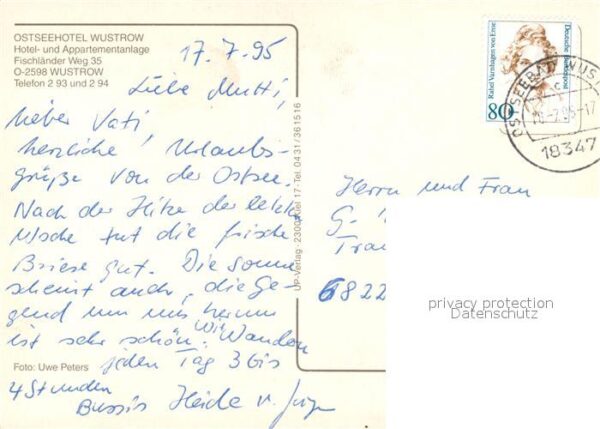 OSTSEEHOTEL WUSTROW
Hotel- und Appartementanlage
Fischländer Weg 35
O-2598 WUSTROW
Telefon 2 93 und 2 94
17.7.95
Liebe Mutti,
lieber Vati,
herzliche Urlaubs-
grüße von der Ostsee.
Nach der Hitze der letzten
Woche tut die frische
Briese gut. Die Sonne
scheint auch, die Ge-
gend um uns herum
ist sehr schön. Wir Wandern
jeden Tag 3 bis
4 Stunden
Bussis Heide u.
Foto: Uwe Peters
UP-Verlag · 2300 Kiel 17 · Tel. 0431/361516
Rahel Varnhagen von Ense
Deutsche Bundespost
80
OSTSEEBAD WUST
18347
Herrn und Frau
G.
6822
privacy protection
Datenschutz